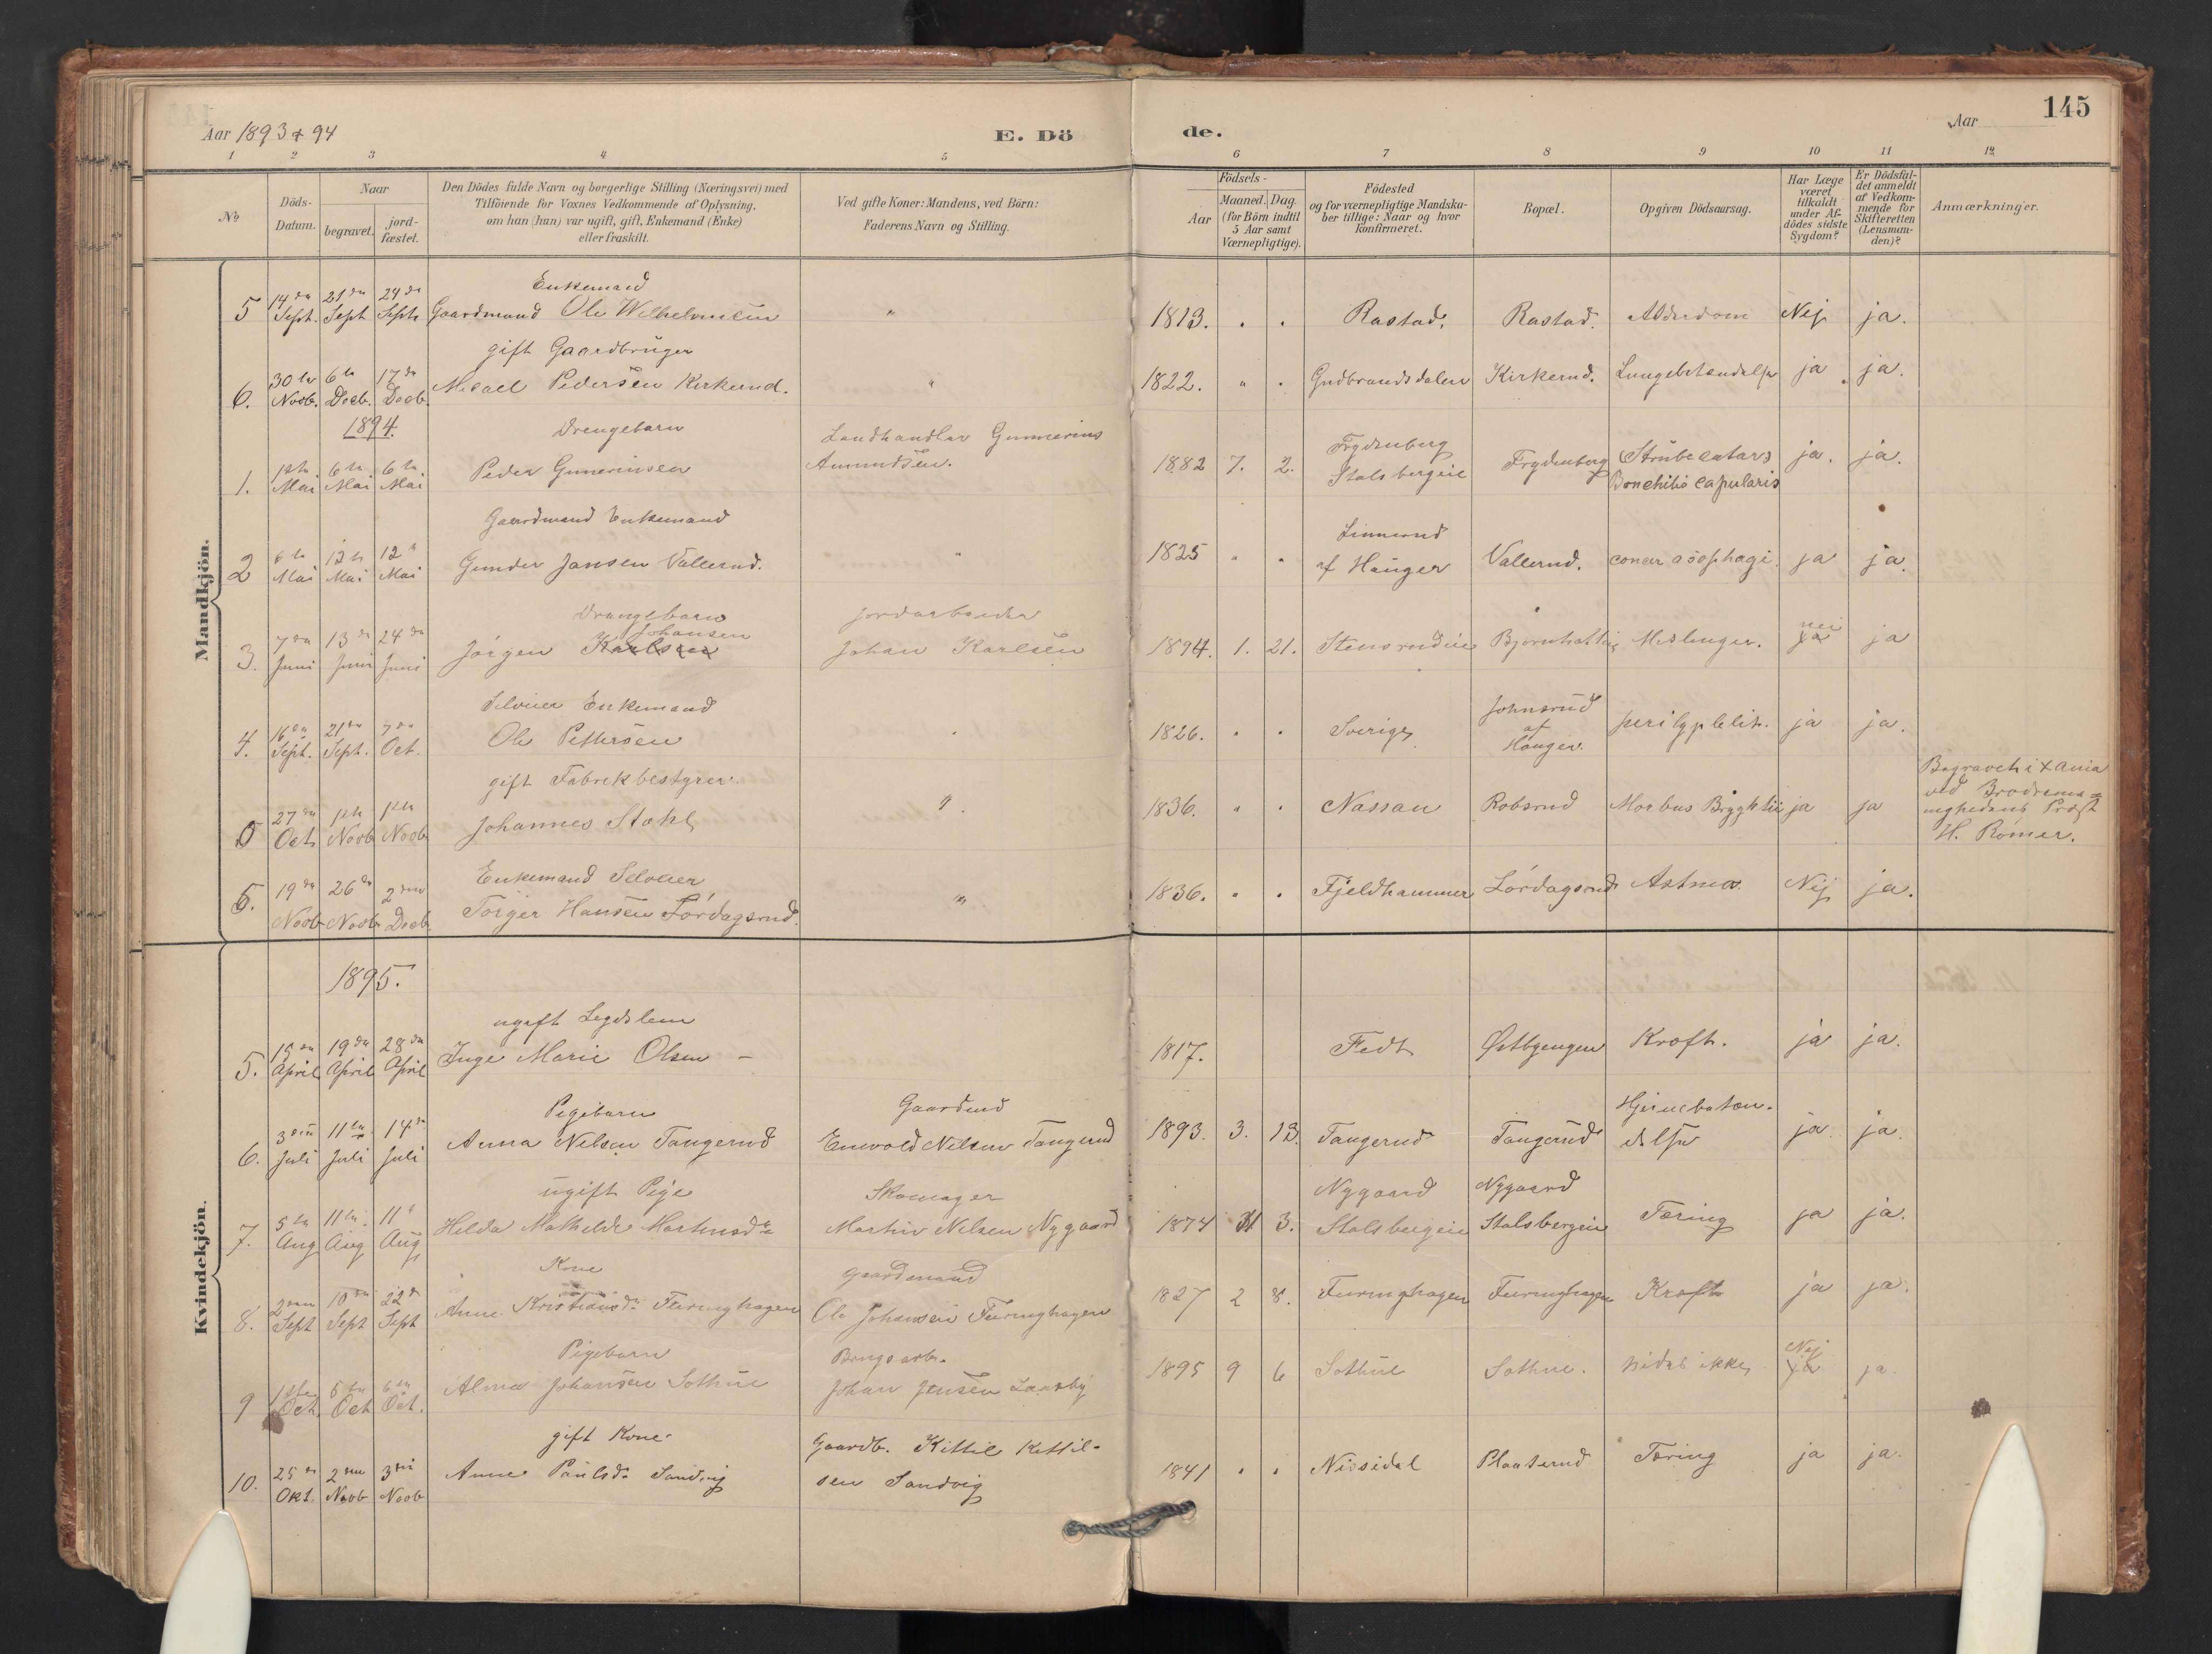 Aar 1893 & 94
E. Dö
de.
Aar
145
1 2 3 4 5 6 7 8 9 10 11 12
No
Döds-
Datum.
Naar
begravet.
jord-
fæstet.
Den Dödes fulde Navn og borgerlige Stilling (Næringsvei) med
Tilföiende for Voxnes Vedkommende af Oplysning,
om han (hun) var ugift, gift, Enkemand (Enke)
eller fraskilt.
Ved gifte Koner: Mandens, ved Börn:
Faderens Navn og Stilling.
Födsels-
Aar
Maaned. Dag.
(for Börn indtil
5 Aar samt
Værnepligtige).
Födested
og for værnepligtige Mandska-
ber tillige: Naar og hvor
konfirmeret.
Bopæl.
Opgiven Dödsaarsag.
Har Læge
været
tilkaldt
under Af-
dödes sidste
Sygdom?
Er Dödsfal-
det anmeldt
af Vedkom-
mende for
Skifteretten
(Lensman-
den)?
Anmærkninger.
Mandkjön.
Enkemand
5 14de Sept. 21de Sept 24de Sept. Gaardmand Ole Wilhelmsen " 1813. " " Rastad. Rastad. Alderdom Nej ja.
gift Gaardbruger
6. 30te Novb. 6te Decb. 17de Decb. Micael Pedersen Kirkerud. " 1822. " " Gudbrandsdalen Kirkerud. Lungebetændelse ja ja.
1894.
Drengebarn
Landhandler Gunnerius
Frydenberg
1. 1ste Mai 6te Mai 6te Mai Peder Gunneriusen Amundsen. 1882 7. 2. Stalsbergeie Frydenberg Strubecatar ja. ja.
Bonchitis capularis
Gaardmand Enkemand
Linnerud
2 6te Mai 12te Mai 12te Mai Gunder Jansen Vallerud. " 1825 " " af Hauger Vallerud. ja ja.
Drengebarn
Johansen
Jordarbeider
nei
3. 7de Juni 13de Juni 24de Juni Jörgen Karlsen Johan Karlsen 1894. 1. 21. Stensrudeie Meslinger. ja ja
Selveier Enkemand
Johnsrud
af
Hauger.
4. 16de Sept. 21de Sept. 7de Oct. Ole Pettersen " 1826. " " Sverige ja ja.
gift Fabrekbestyrer.
5 27de Oct. 1ste Novb 1ste Novb Johannes Stahl " 1836. " " Nassau Robsrud Morbus Brygktii ja ja
Begravet i Xania
ved Brödreme-
nighedens Præst
H. Römer.
Enkemand Selveier
6. 19de Novb 26de Novb 2den Decb. Törger Hansen Lördagsrud. " 1836. " " Fjeldhammer Lördagsrud Astma. Nej ja.
Kvindekjön.
1895.
ugift Legdslem
5. 15de April 19de April 28de April Inge Marie Olsen – 1817. Fedt Østbyengen Kræft. ja ja.
Pigebarn
Gaardmd
Hjernebetæn-
6. 3die Juli 11te Juli 14de Juli Anna Nelsen Tangerud Enevold Nelsen Tangerud 1893. 3. 13. Tangerud Tangerud delse ja. ja.
ugift Pige
Skomager
Nygaard
Nygaard
7. 5te Aug 11te Aug 11te Aug Helda Mathelde Martinsd. Martin Nelsen Nygaard 1874 3. Stalsbergeie Stalsbergeie Tæring ja ja.
Kone
Gaardmand
8. 2den Sept 10de Sept 22de Sept Anne Kristiansd. Furinghagen Ole Johansen Furinghagen 1827 2 8. Furinghagen Furinghagen Kræft ja ja.
Pigebarn
Nej
9 1ste Oct. 6te Oct 6te Oct. Alma Johansen Sothue Johan Jensen 1895 9 6 Sothue Sothue. vides ikke ja ja.
gift Kone.
Gaardb. Kittil Kittil-
10. 25de Okt. 2den Novb 3die Novb Anne Paulsd. Sandvig sen Sandvig 1841 " " Nissidal Plaaterud Tæring ja ja.